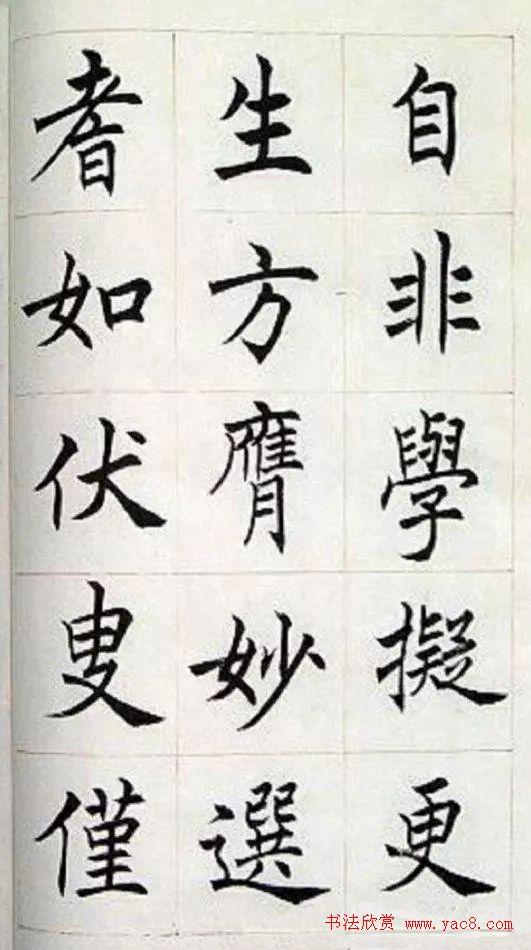 自非學擬更
生方膺妙選
耆如伏叟僅
书法欣赏 www.yac8.com